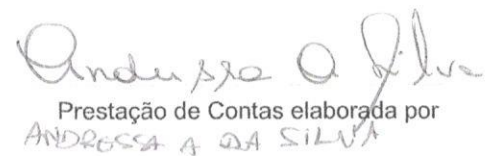 Andressa A Silva
Prestação de Contas elaborada por
ANDRESSA A DA SILVA